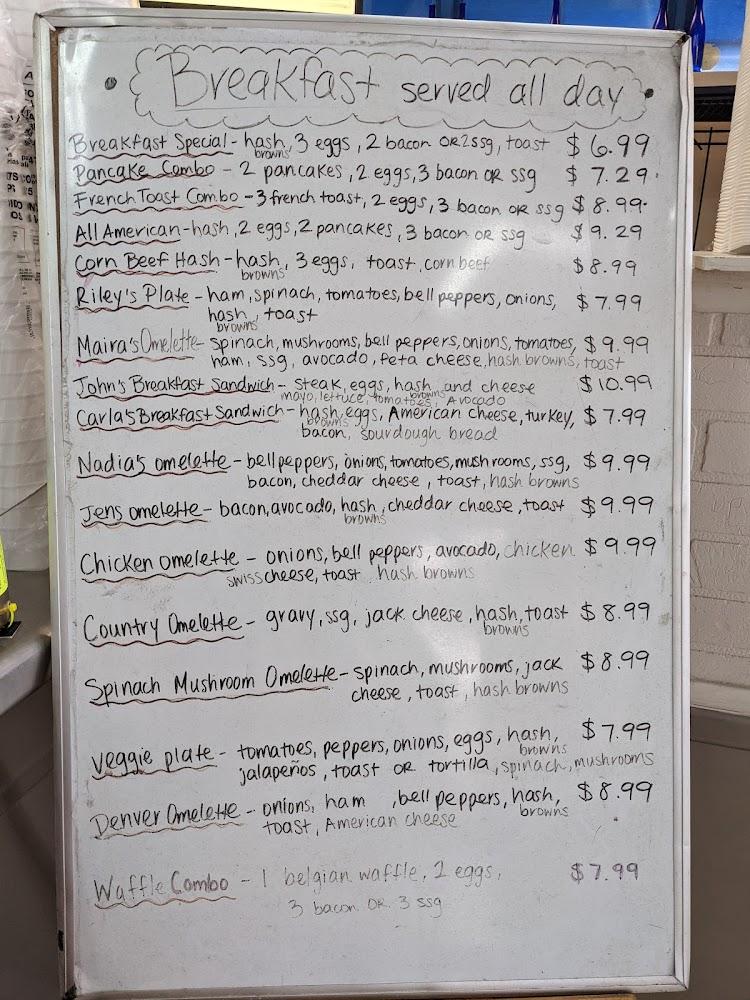 Breakfast served all day
Breakfast Special - hash browns, 3 eggs, 2 bacon OR 2 ssg, toast $6.99
Pancake Combo - 2 pancakes, 2 eggs, 3 bacon OR ssg $7.29
French Toast Combo - 3 french toast, 2 eggs, 3 bacon OR ssg $8.99
All American - hash, 2 eggs, 2 pancakes, 3 bacon or ssg $9.29
Corn Beef Hash - hash browns, 3 eggs, toast, corn beef $8.99
Riley's Plate - ham, spinach, tomatoes, bell peppers, onions, $7.99
hash browns, toast
Maira's Omelette - spinach, mushrooms, bell peppers, onions, tomatoes, $9.99
ham, ssg, avocado, feta cheese, hash browns, toast
John's Breakfast Sandwich - steak, eggs, hash browns and cheese $10.99
mayo, lettuce, tomatoes, Avocado
Carla's Breakfast Sandwich - hash browns, eggs, American cheese, turkey, $7.99
bacon, sourdough bread
Nadia's omelette - bell peppers, onions, tomatoes, mushrooms, ssg, $9.99
bacon, cheddar cheese, toast, hash browns
Jens omelette - bacon, avocado, hash browns, cheddar cheese, toast $9.99
Chicken omelette - onions, bell peppers, avocado, chicken $9.99
swiss cheese, toast hash browns
Country Omelette - gravy, ssg, jack cheese, hash browns, toast $8.99
Spinach Mushroom Omelette - spinach, mushrooms, jack $8.99
cheese, toast, hash browns
Veggie plate - tomatoes, peppers, onions, eggs, hash browns, $7.99
jalapeños, toast OR tortilla, spinach, mushrooms
Denver Omelette - onions, ham, bell peppers, hash browns, $8.99
toast, American cheese
Waffle Combo - 1 belgian waffle, 2 eggs, $7.99
3 bacon OR 3 ssg